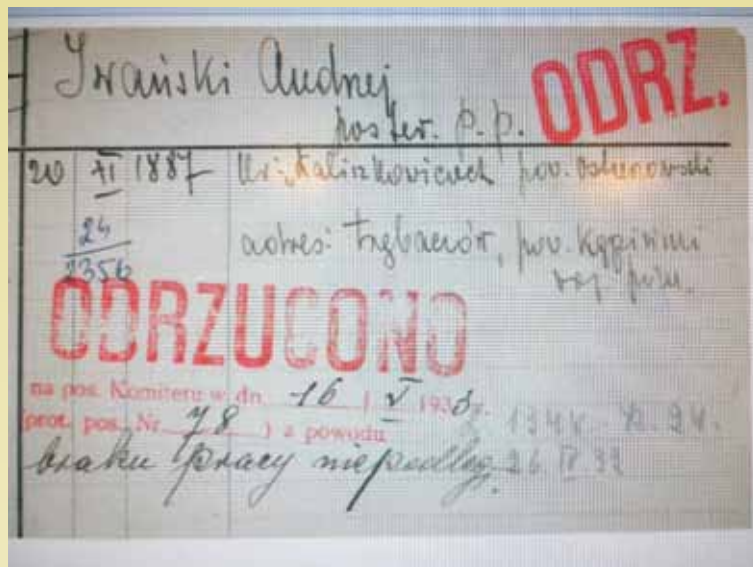 Iwański Andrzej
ODRZ.
poster. p.p.
20 XI 1887 Ur: Kaliszkowicach pow. Ostrzeszowski
24
2356
adres: Trębaczów, pow. Kępiński
woj. pozn.
ODRZUCONO
na pos. Komitetu w dn. 16 / V 1933 r.
(prot. pos. Nr. 78 ) z powodu
braku pracy niepodleg. 26.IV.33